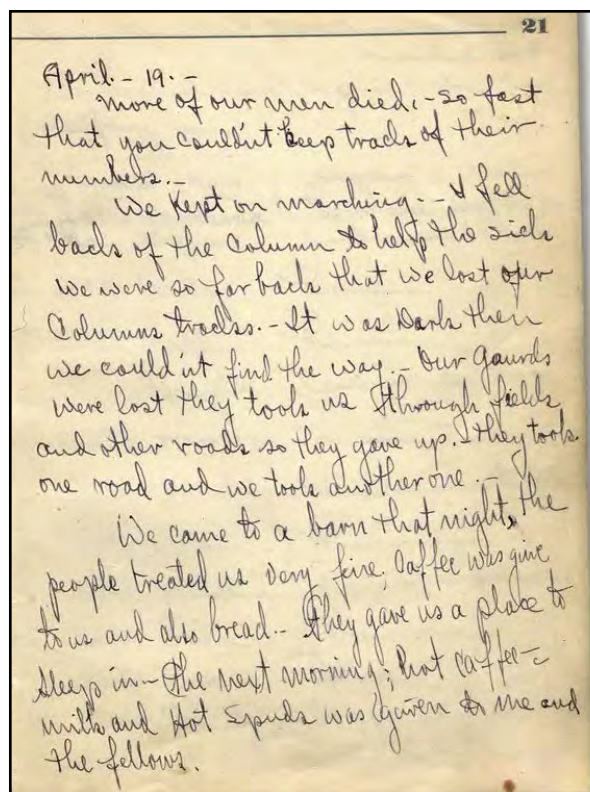 21
April. - 19. -
More of our men died, - so fast
that you couldn't keep track of their
numbers. -
We Kept on marching. - I fell
back of the column to help the sick
we were so far back that we lost our
Columns tracks. - It was Dark then
we could'nt find the way. - Our Gaurds
were lost they took us through fields
and other roads so they gave up. - they took
one road and we took another one. -
We came to a barn that night, the
people treated us very fine; Caffee was give
to us and also bread. - They gave us a place to
sleep in - The next morning; hot caffee -
milk and Hot Spuds was given to me and
the fellows.